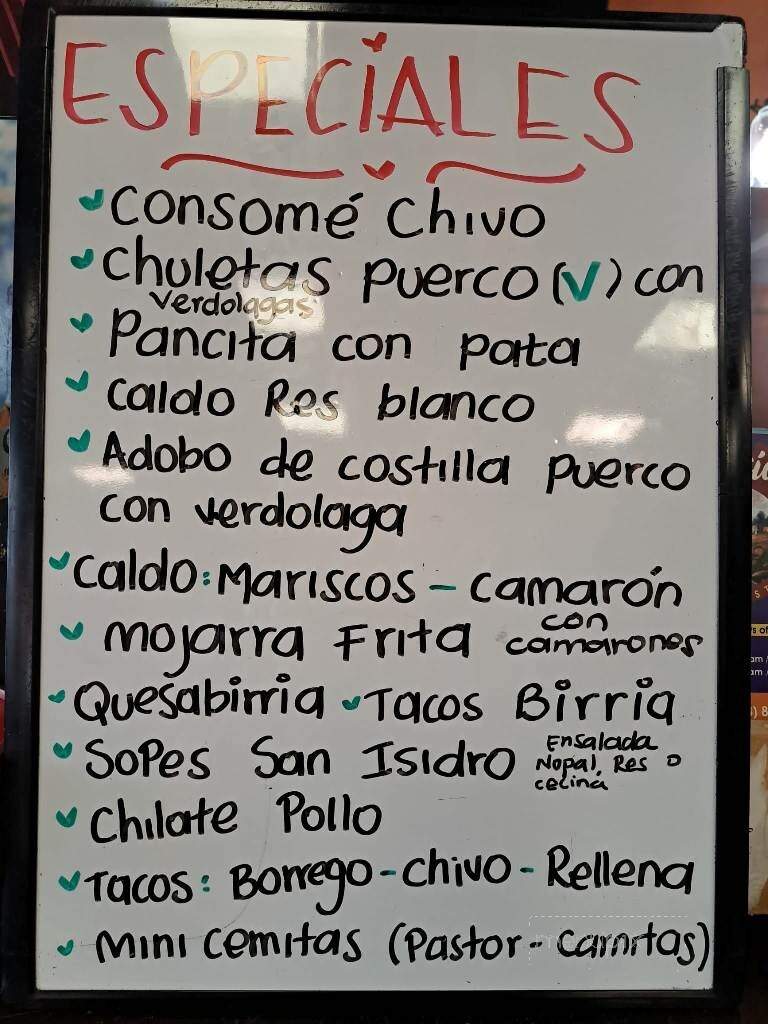 ESPECIALES
Consomé Chivo
Chuletas puerco (V) con
verdolagas
Pancita con pata
caldo Res blanco
Adobo de costilla puerco
con verdolaga
caldo: Mariscos - camarón
mojarra Frita con
camarones
Quesabirria Tacos Birria
Sopes San Isidro Ensalada
Nopal, Res o
cecina
Chilate Pollo
Tacos: Borrego - chivo - Rellena
Mini cemitas (Pastor - carnitas)